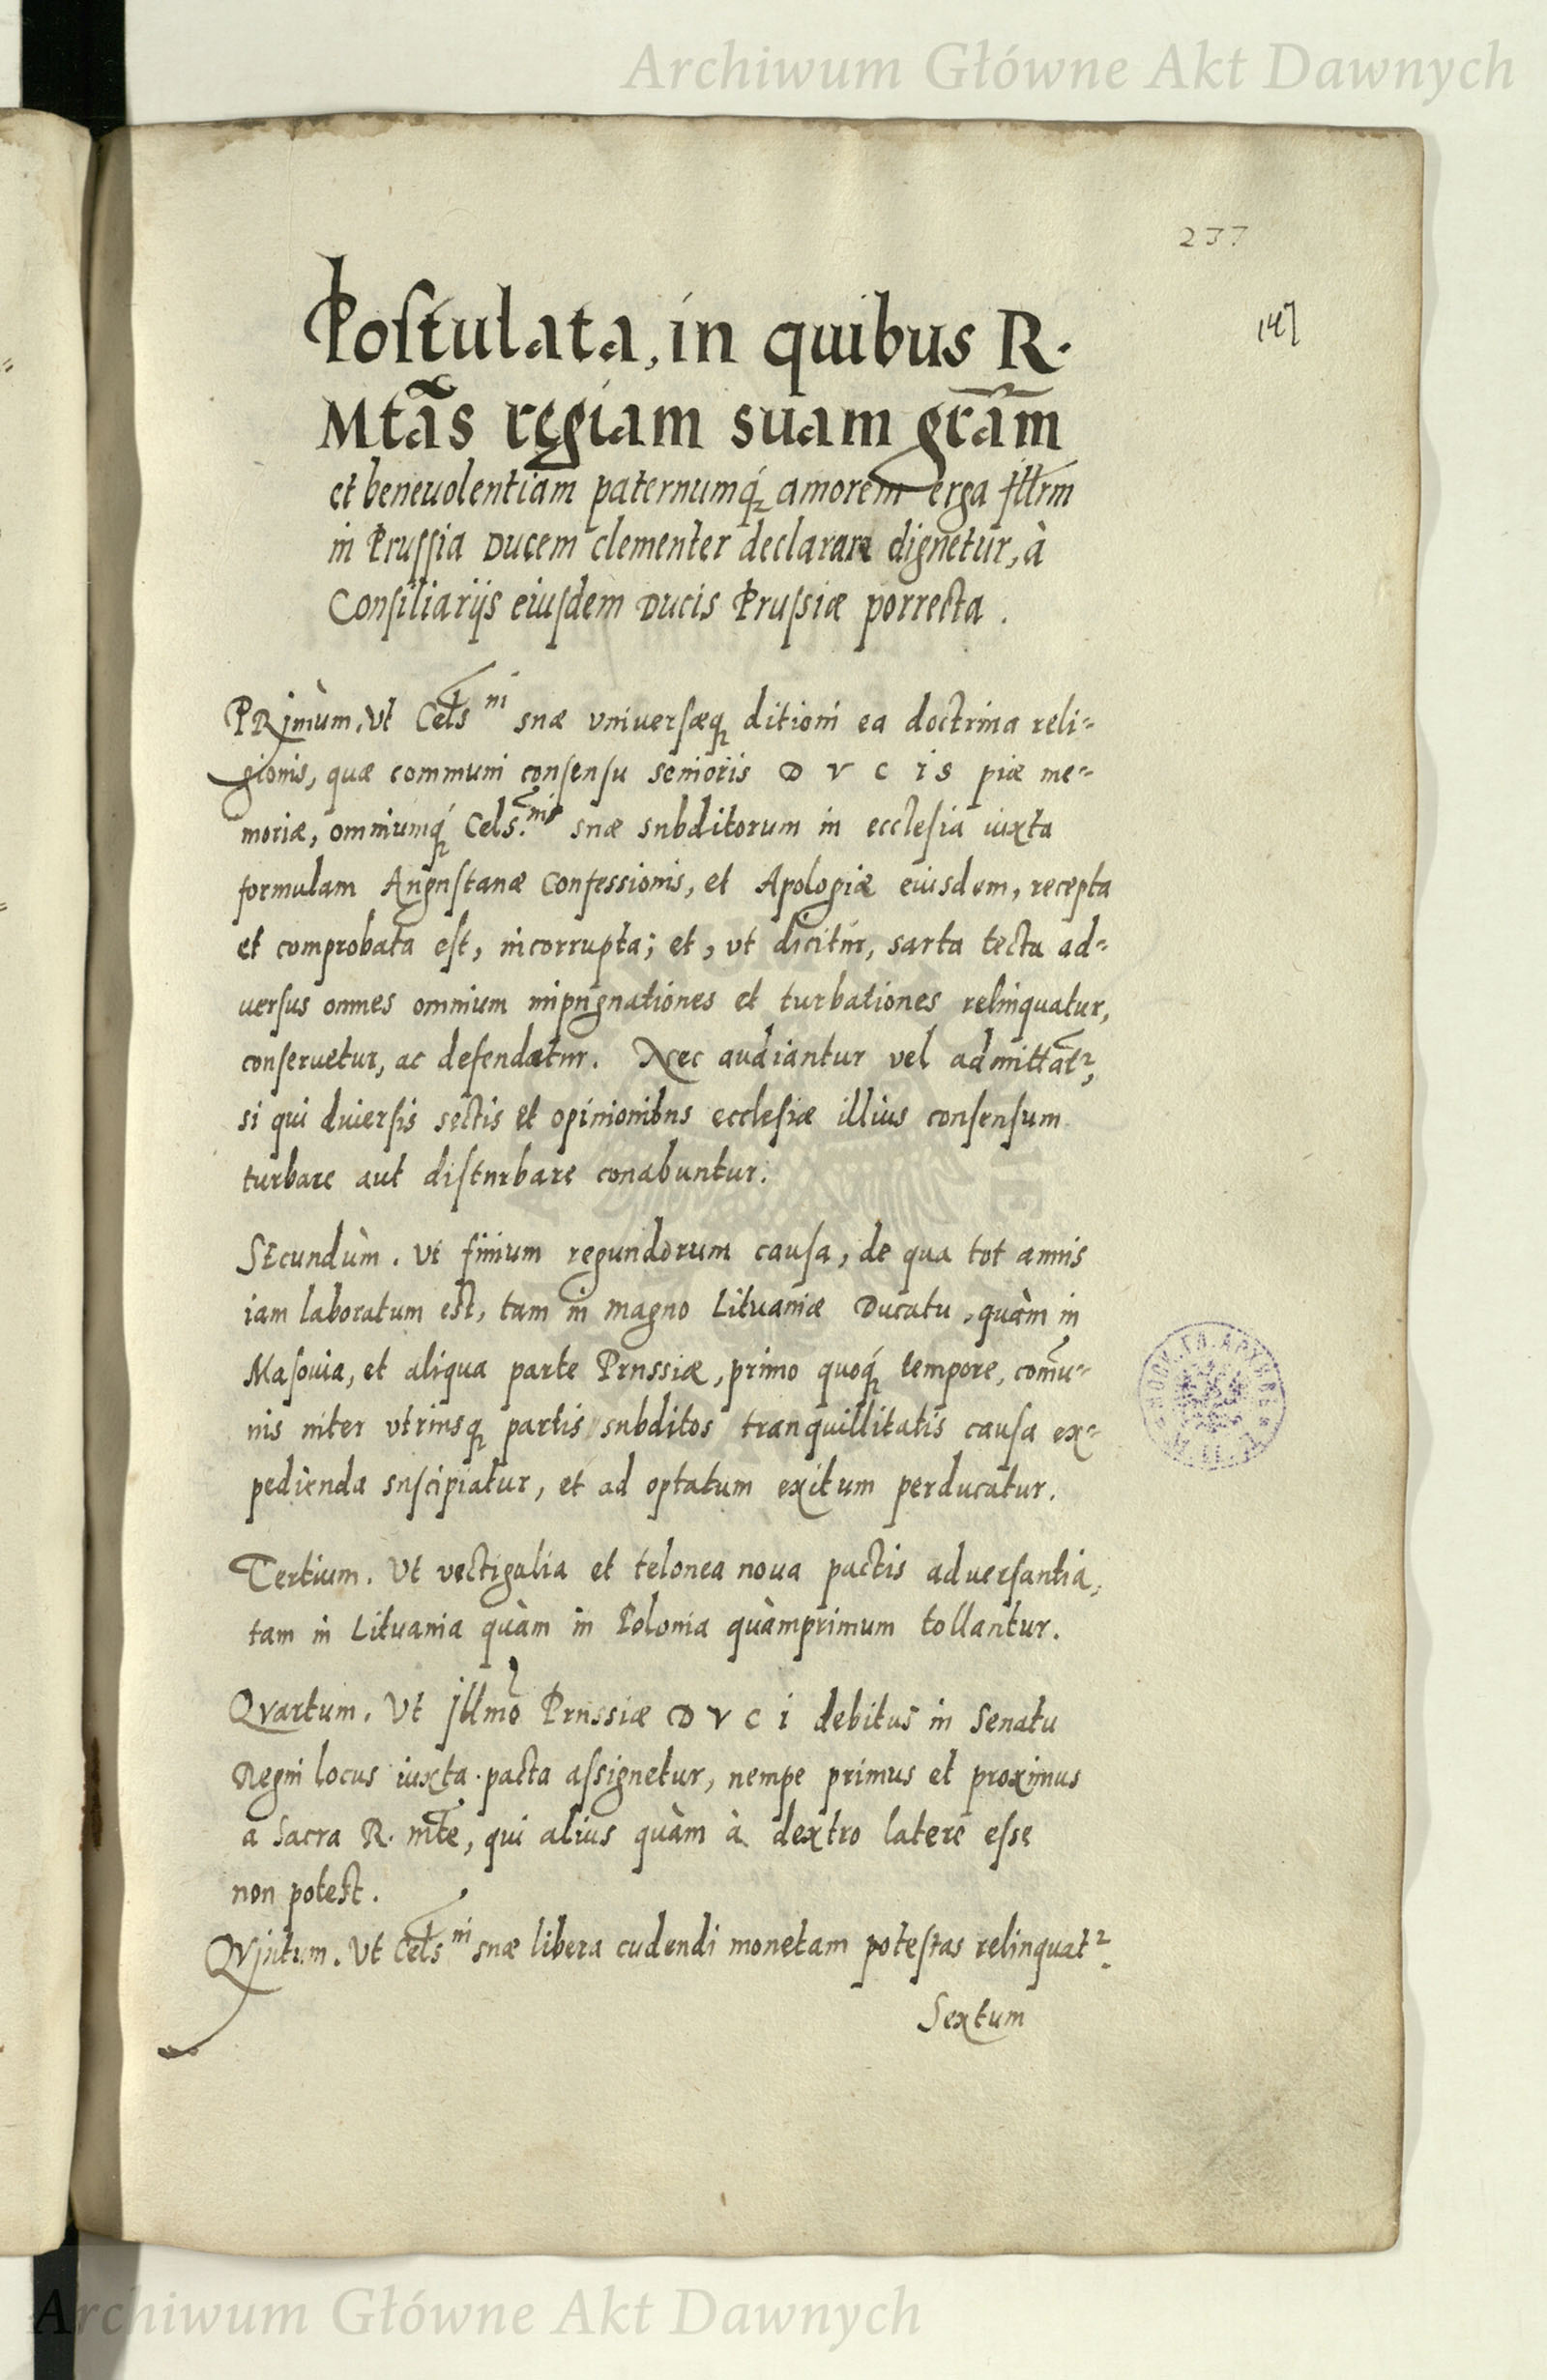 Archiwum Główne Akt Dawnych
237
147
Postulata, in quibus R.
Mtãs regiam suam grãm
et beneuolentiam paternumq́; amorem erga Jllrm
in Prussia Ducem clementer declarare dignetur, à
Consiliarijs eiusdem Ducis Prussiæ porrecta.
PRjmùm, Vt Cels ni snæ vniuersæq; ditioni ea doctrina reli-
gionis, quæ communi consensu senioris D V C I S piæ me-
moriæ, omniumq́; Cels. nis snæ subditorum in ecclesia iuxta
formulam Augustanæ Confessionis, et Apologiæ eiusdem, recepta
et comprobata est, incorrupta; et, vt dicitur, sarta tecta ad-
uersus omnes omnium impugnationes et turbationes relinquatur,
conseruetur, ac defendatur. Nec audiantur vel admittãt2,
si qui diuersis sectis et opinionibus ecclesiæ illius consensum
turbare aut disturbare conabuntur.
SEcundùm. Vt finium regundorum causa, de qua tot annis
iam laboratum est, tam in magno Lituaniæ Ducatu, quàm in
Masouia, et aliqua parte Prussiæ, primo quoq́; tempore, com̃u-
nis inter vtriusq; partis subditos tranquillitatis causa ex-
pedienda suscipiatur, et ad optatum exitum perducatur.
Tertium. Vt vectigalia et telonea noua pactis aduersantia,
tam in Lituania quàm in Polonia quàmprimum tollantur.
QVartum. Vt Jllmo Prussiæ D V C I debitus in Senatu
Regni locus iuxta pacta assignetur, nempe primus et proximus
a Sacra R. mte, qui alius quàm à dextro latere esse
non potest.
QVjntum. Vt Cels ni snæ libera cudendi monetam potestas relinquat2.
Sextum
Archiwum Główne Akt Dawnych